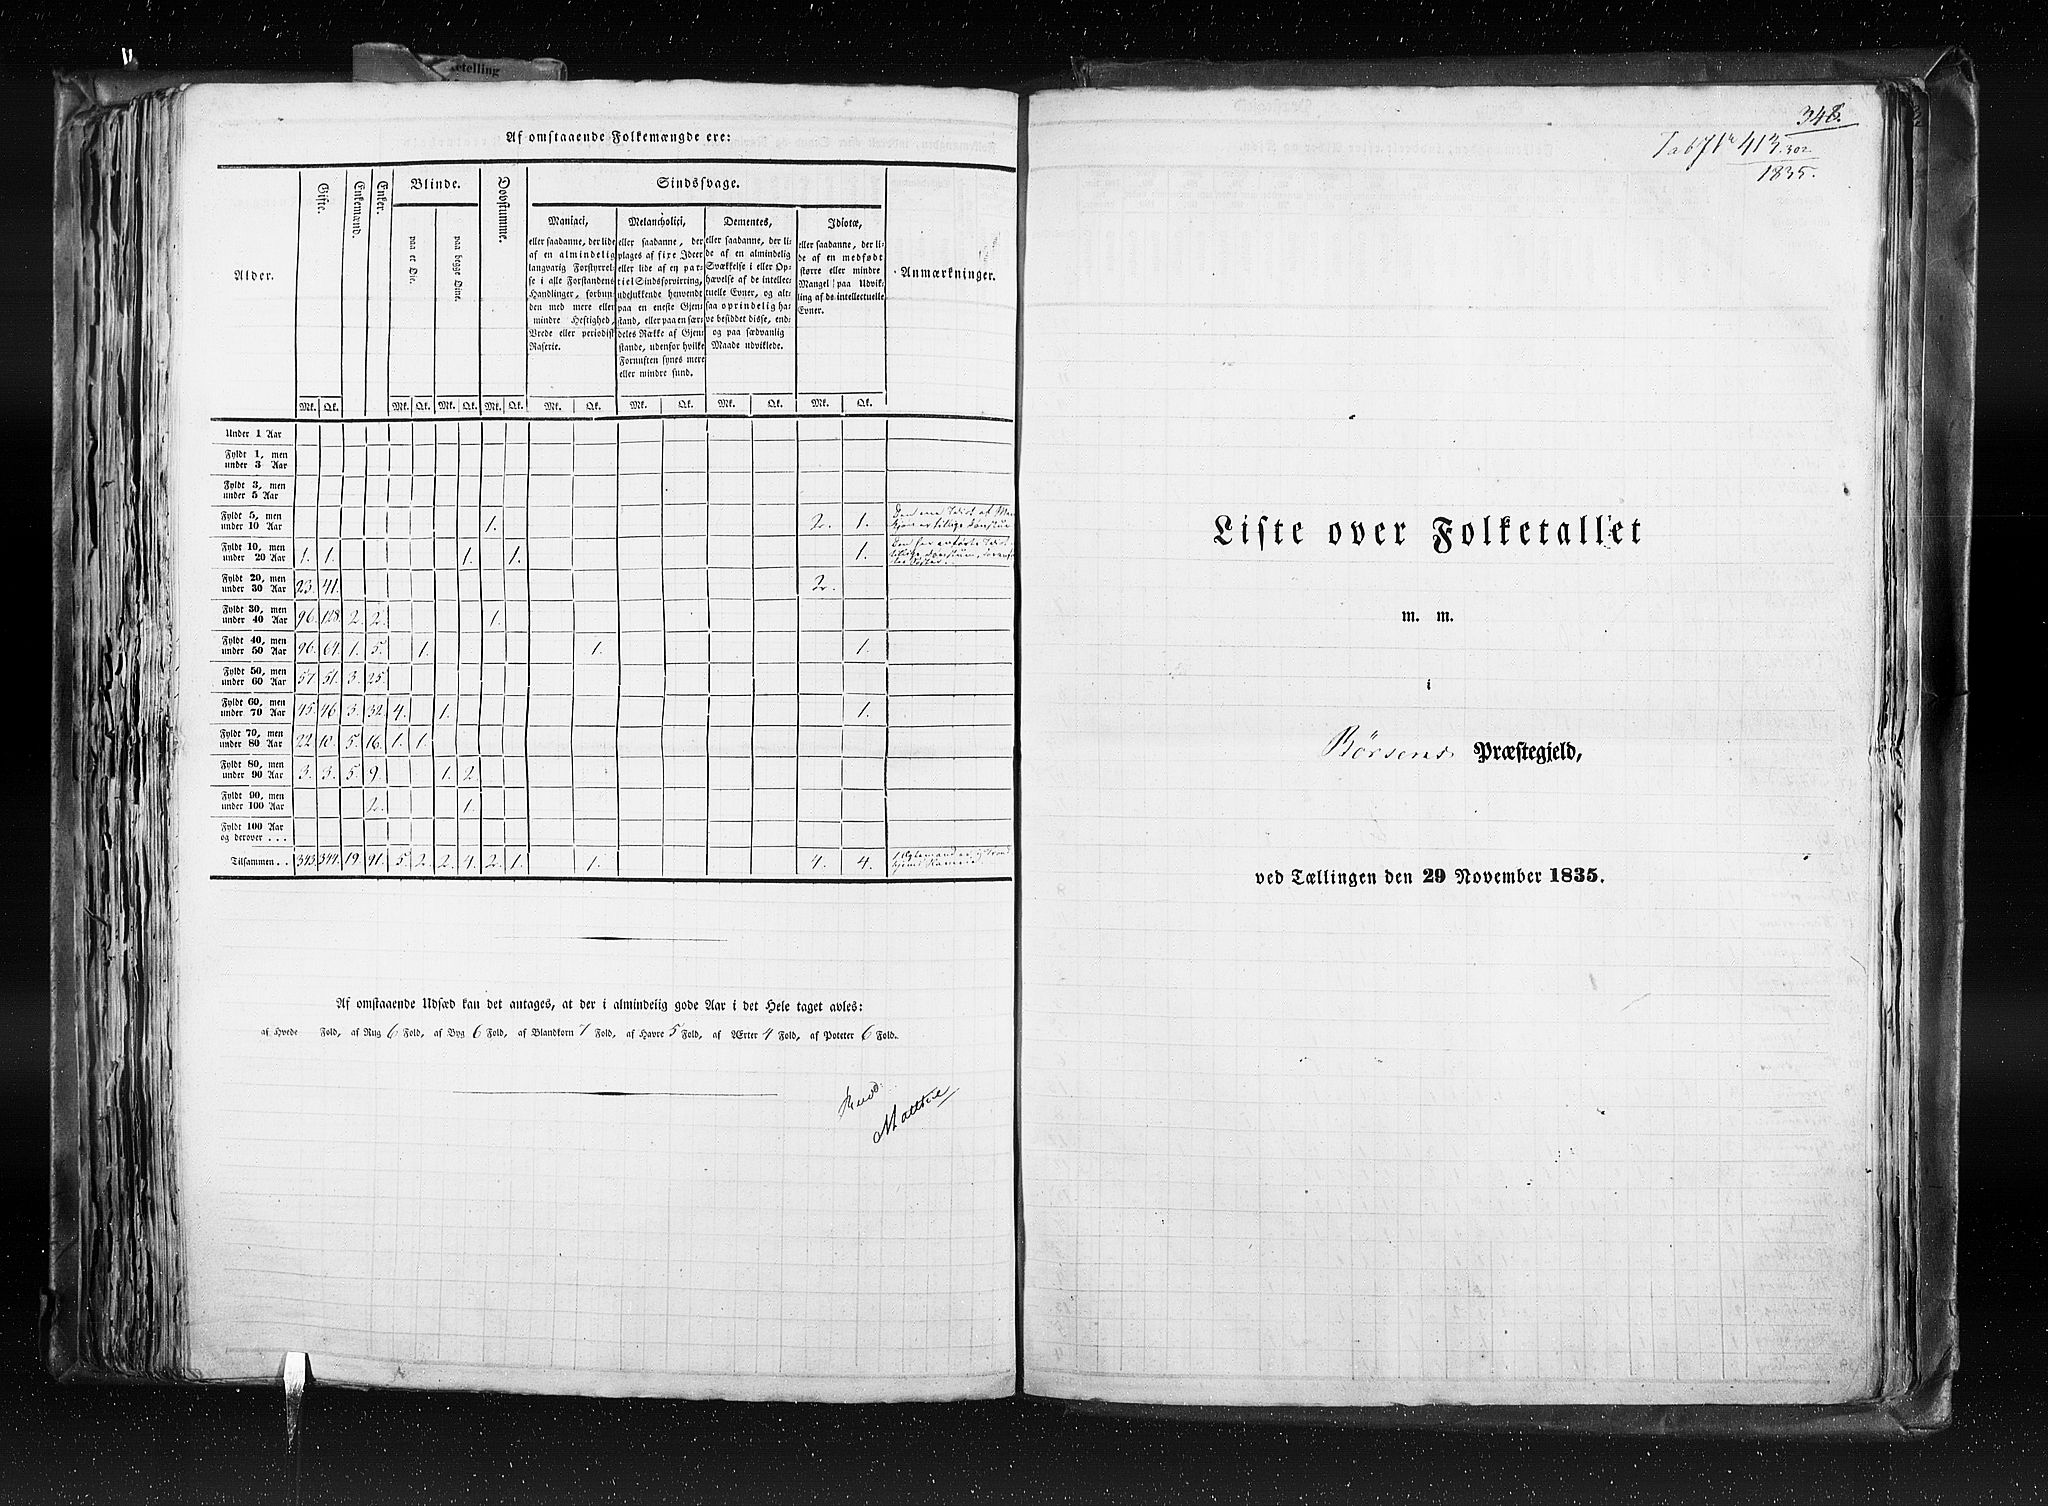 ketelling
Af omstaaende Folkemængde ere:
Alder.
Gifte.
Enkemænd.
Enker.
Blinde.
paa et Øie.
paa begge Øine.
Døvstumme.
Sindssvage.
Maniaci,
eller saadanne, der lide
af en almindelig
langvarig Forstyrrel-
se i alle Forstandens
Handlinger, forbun-
den med mere eller
mindre Heftighed,
Vrede eller periodisk
Raserie.
Melancholici,
eller saadanne, der
plages af fixe Ideer
eller lide af en par-
tiel Sindsforvirring,
udelukkende henvendt
paa en eneste Gjen-
stand, eller paa en sær-
deles Række af Gjen-
stande, udenfor hvilke
Fornuften synes mere
eller mindre sund.
Dementes,
eller saadanne, der li-
de af en almindelig
Svækkelse i eller Op-
hævelse af de intellec-
tuelle Evner, og alt-
saa oprindelig ha-
ve besiddet disse, end-
og paa sædvanlig
Maade udviklede.
Idiotæ,
eller saadanne, der li-
de af en medfødt
større eller mindre
Mangel paa Udvik-
ling af de intellectuelle
Evner.
Anmærkninger.
Mk. Qk. Mk. Qk. Mk. Qk. Mk. Qk. Mk. Qk. Mk. Qk. Mk. Qk. Mk. Qk.
Under 1 Aar
Fyldt 1, men
under 3 Aar
Fyldt 3, men
under 5 Aar
Fyldt 5, men
under 10 Aar 1. 2. 1.
Fyldt 10, men
under 20 Aar 1. 1. 1. 1. 1.
Fyldt 20, men
under 30 Aar 23. 41. 2.
Fyldt 30, men
under 40 Aar 96. 128. 2. 2. 1.
Fyldt 40, men
under 50 Aar 96. 64. 1. 5. 1. 1. 1.
Fyldt 50, men
under 60 Aar 57. 51. 3. 25.
Fyldt 60, men
under 70 Aar 45. 46. 3. 32. 4. 1. 1.
Fyldt 70, men
under 80 Aar 22. 10. 5. 16. 1. 1.
Fyldt 80, men
under 90 Aar 3. 3. 5. 9. 1. 2.
Fyldt 90, men
under 100 Aar 2. 1.
Fyldt 100 Aar
og derover . . .
Tilsammen . . 343. 344. 19. 91. 5. 2. 2. 4. 2. 1. 1. 4. 4.
Af omstaaende Udsæd kan det antages, at der i almindelig gode Aar i det Hele taget avles:
af Hvede Fold, af Rug 6 Fold, af Byg 6 Fold, af Blandkorn 7 Fold, af Havre 5 Fold, af Ærter 4 Fold, af Poteter 6 Fold.
348.
413.302
1835.
Liste over Folketallet
m. m.
i
Børsens Præstegjeld,
ved Tællingen den 29 November 1835.